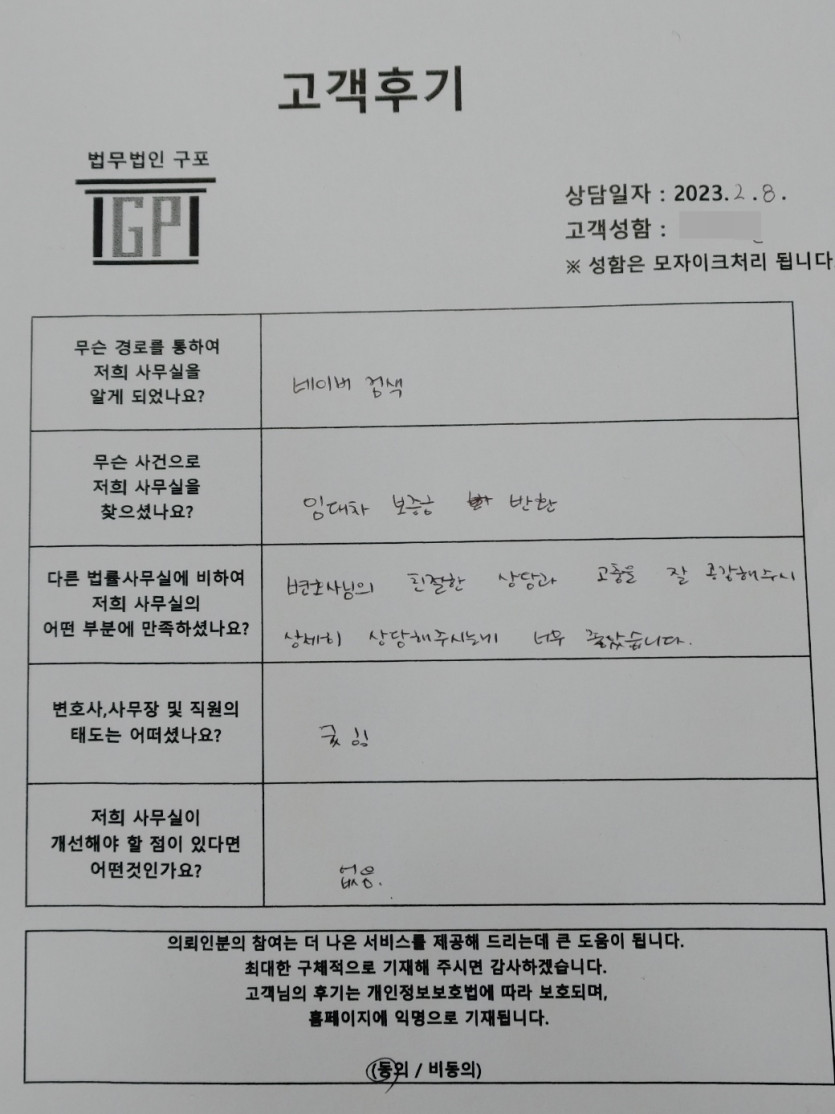 고객후기
법무법인 구포
GP
상담일자 : 2023. 2. 8.
고객성함 :
※ 성함은 모자이크처리 됩니다
무슨 경로를 통하여
저희 사무실을
알게 되었나요?
네이버 검색
무슨 사건으로
저희 사무실을
찾으셨나요?
임대차 보증금 반환
다른 법률사무실에 비하여
저희 사무실의
어떤 부분에 만족하셨나요?
변호사님의 친절한 상담과 고충을 잘 공감해주시
상세히 상담해주시는게 너무 좋았습니다.
변호사,사무장 및 직원의
태도는 어떠셨나요?
굿임
저희 사무실이
개선해야 할 점이 있다면
어떤것인가요?
없음.
의뢰인분의 참여는 더 나은 서비스를 제공해 드리는데 큰 도움이 됩니다.
최대한 구체적으로 기재해 주시면 감사하겠습니다.
고객님의 후기는 개인정보보호법에 따라 보호되며,
홈페이지에 익명으로 기재됩니다.
(동의 / 비동의)